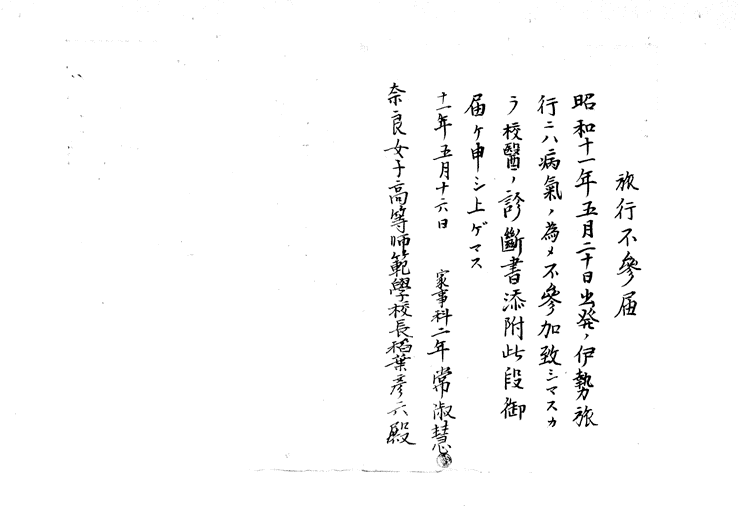 旅行不參届
昭和十一年五月二十日出発ノ伊勢旅
行ニハ病氣ノ為メ不參加致シマスカ
ラ校醫ノ診斷書添附此段御
届ケ申シ上ゲマス
十一年五月十六日 家事科二年 常淑慧
奈良女子高等師範學校長稻葉彦六殿